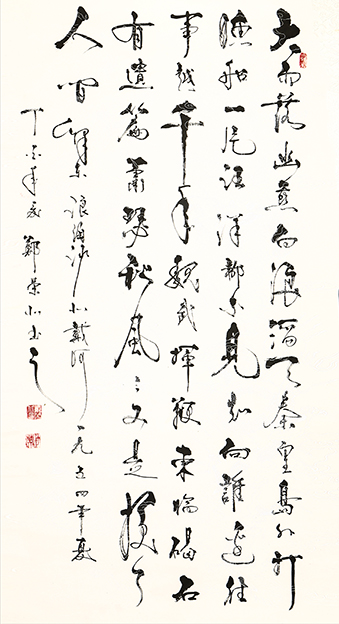 大雨落幽燕白浪滔天秦皇島外打
漁船一片汪洋都不見知向誰邊往
事越千年魏武揮鞭東臨碣石
有遺篇蕭瑟秋風今又是換了
人間 毛澤東浪淘沙北戴河 一九五四年夏
丁亥年 鄭榮 書之